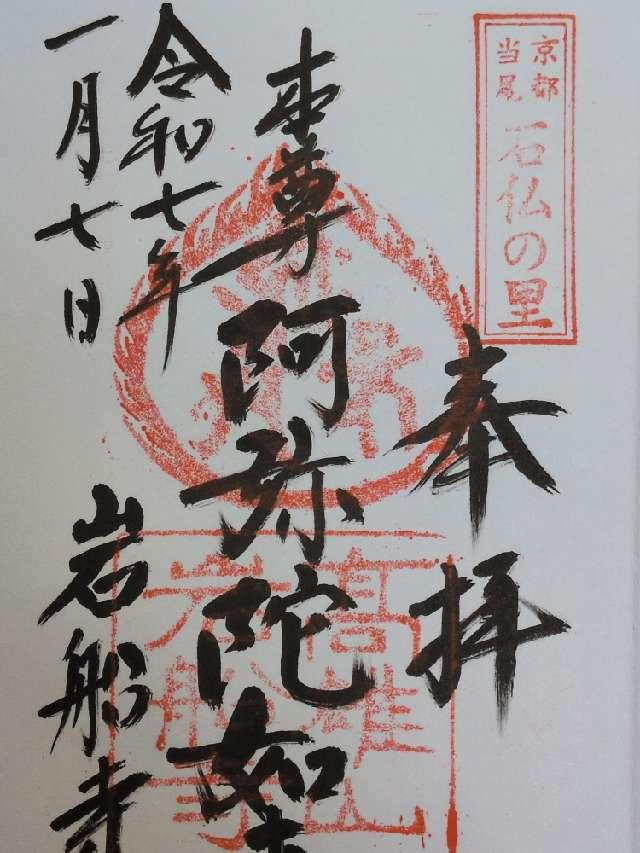 京都
当尾
石仏の里
奉拝
本尊阿弥陀如
令和七年
一月七日
岩船寺
高雄山
岩船寺